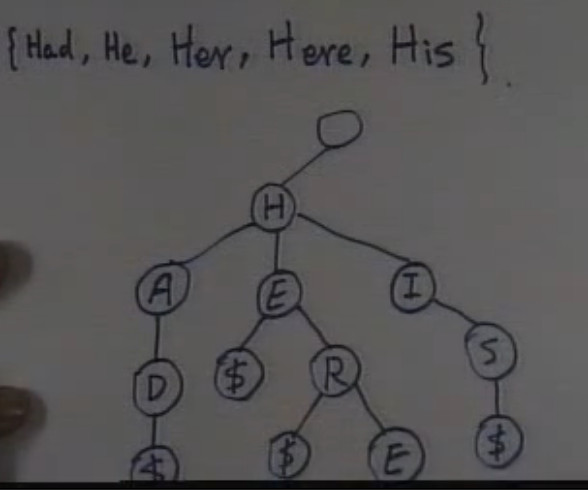 {Had, He, Her, Here, His}.
H
A E I
D $ R S
$ $ E $